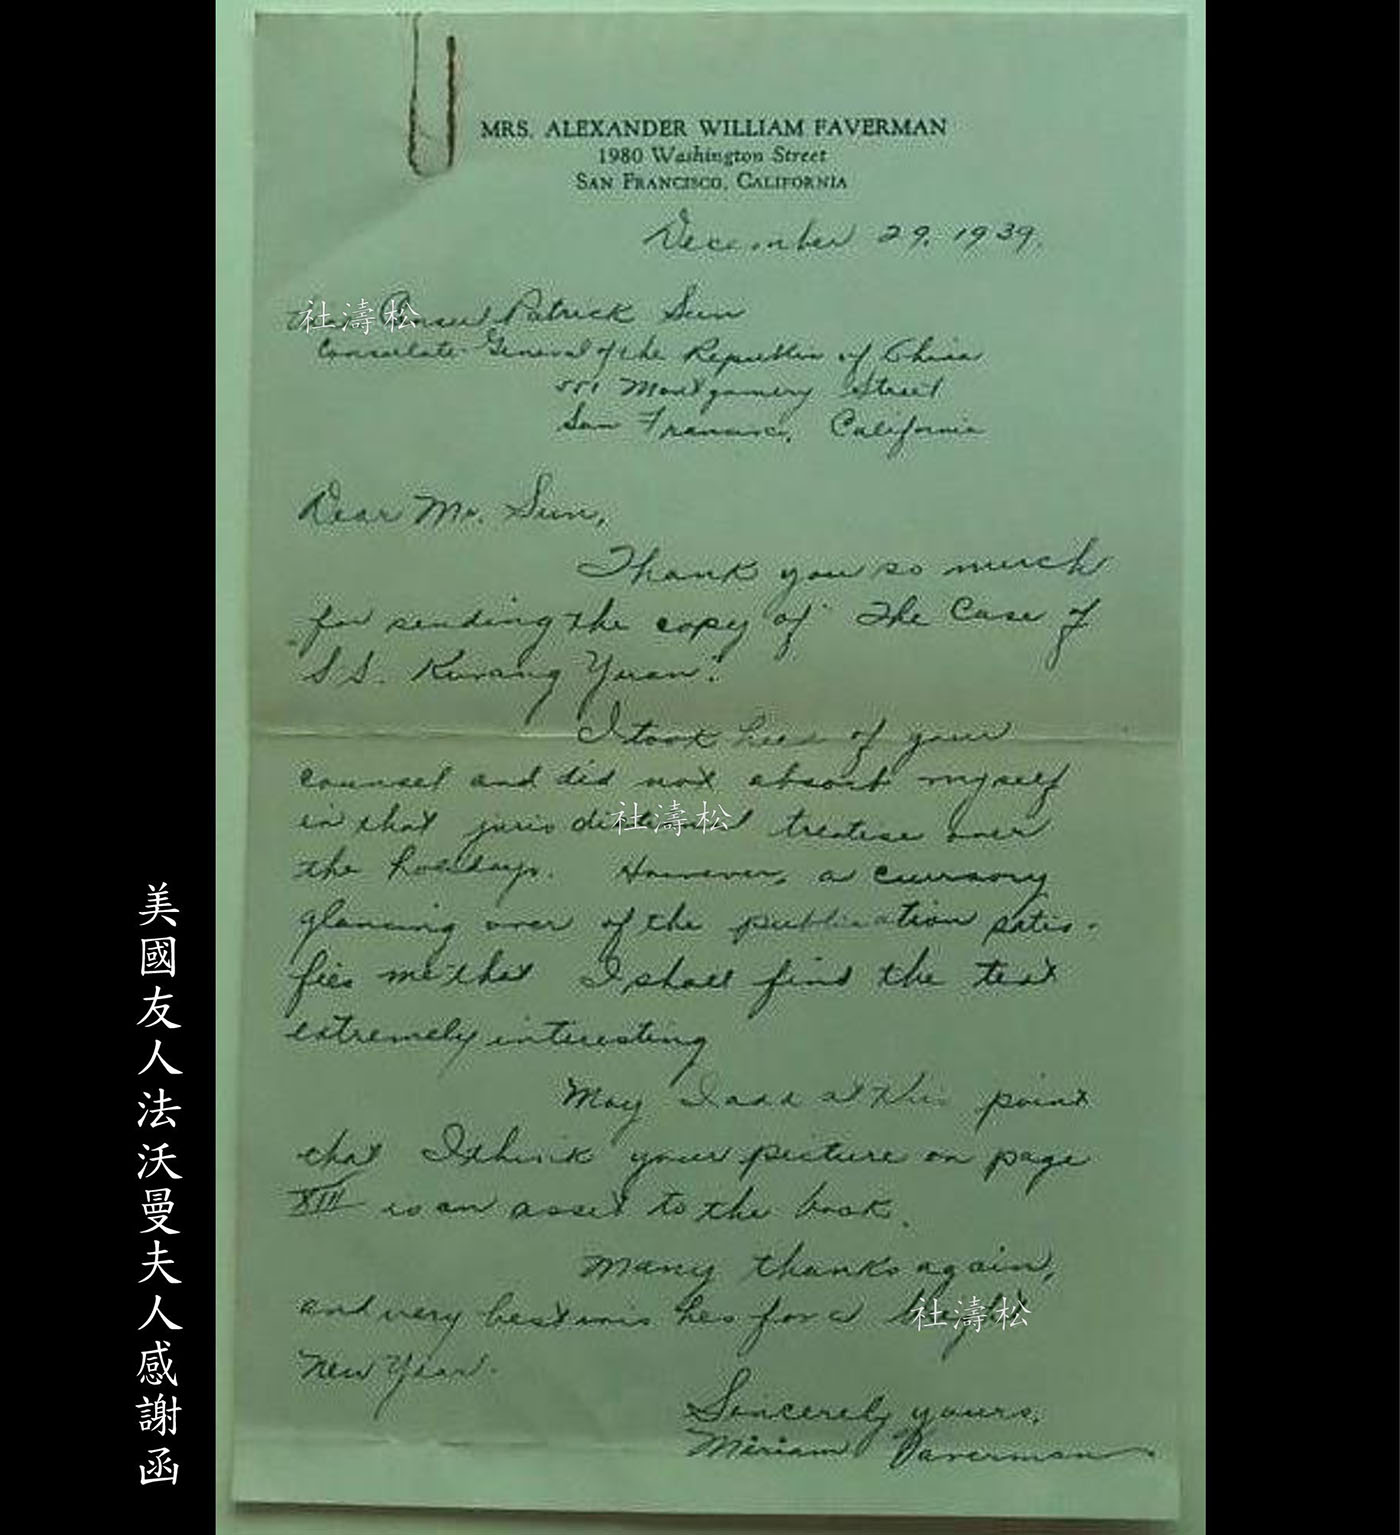 MRS. ALEXANDER WILLIAM FAVERMAN
1980 Washington Street
SAN FRANCISCO, CALIFORNIA
December 29, 1939.
Patrick Sun
Consulate-General of the Republic of China
551 Montgomery Street
San Francisco, California
Dear Mr. Sun,
Thank you so much
for sending the copy of "The Case of
S.S. Kwang Yuan".
I took heed of your
counsel and did not absorb myself
in that jurisdictional treatise over
the holidays. However, a cursory
glancing over of the publication satis-
fies me that I shall find the text
extremely interesting
May I add at this point
that I think your picture on page
XIII is an asset to the book.
Many thanks again,
and very best wishes for a bright
New Year.
Sincerely yours,
Miriam Faverman
社濤松
社濤松
社濤松
美國友人法沃曼夫人感謝函